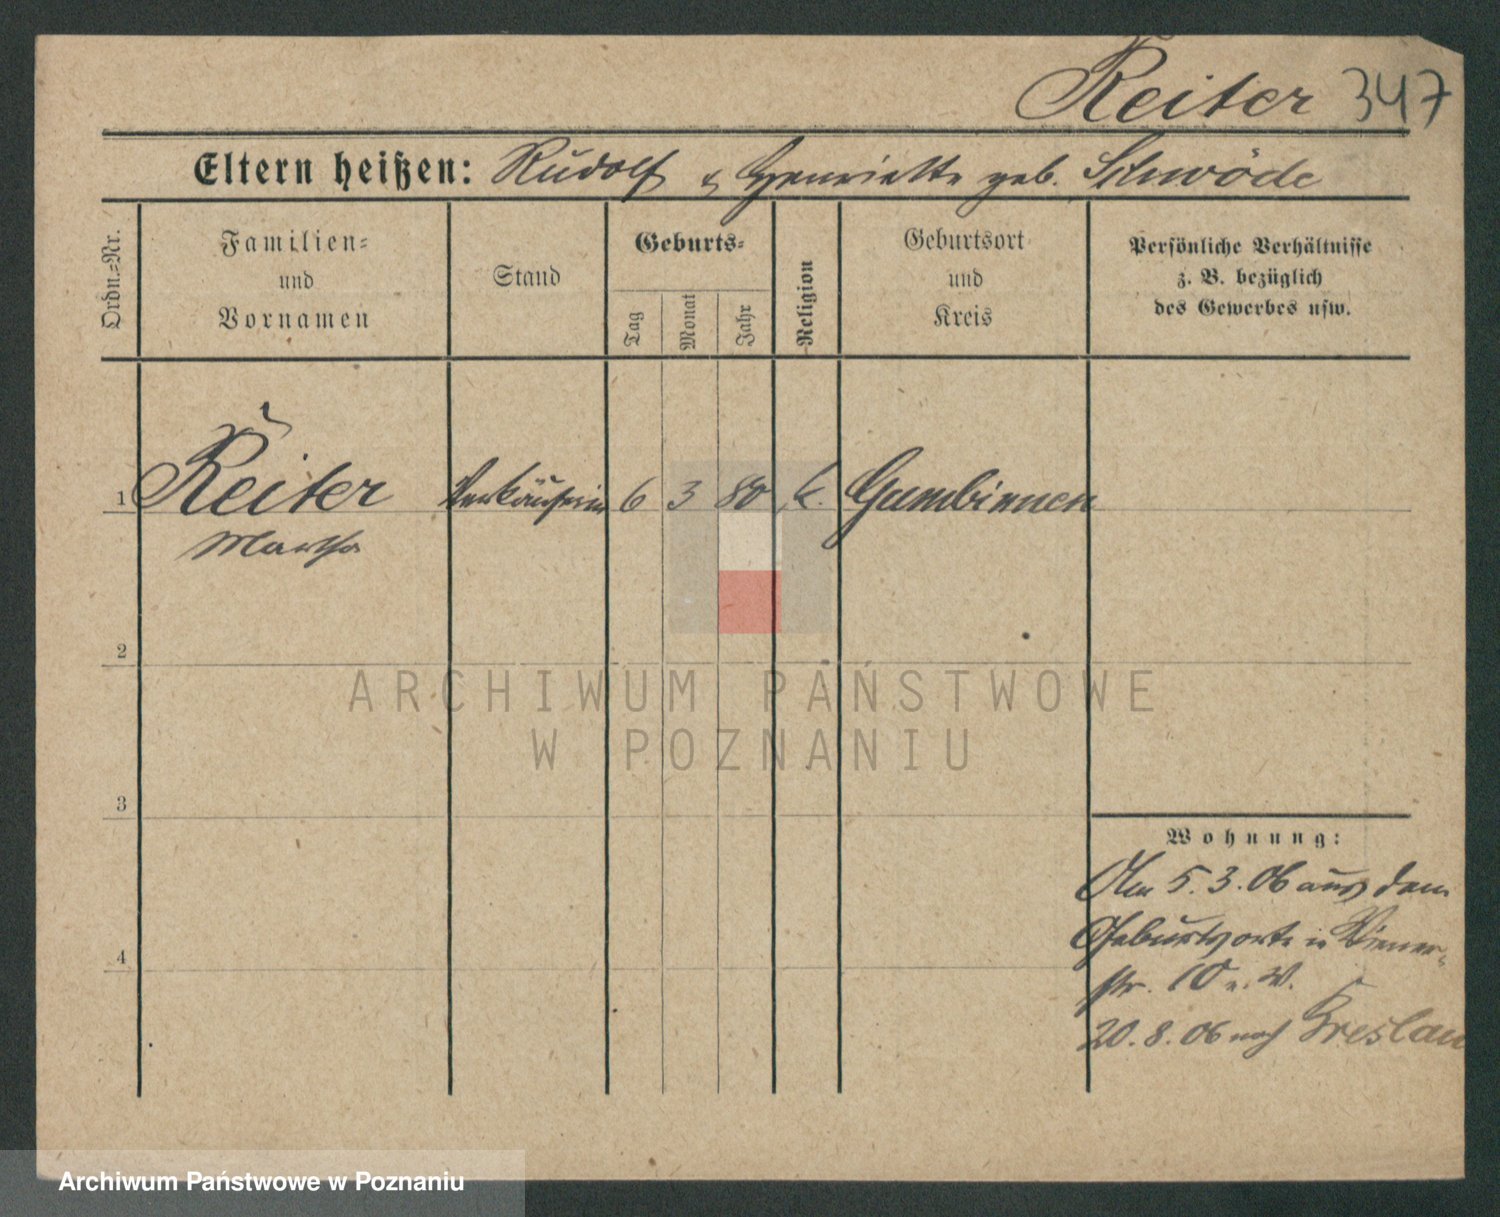 Reiter 347
Eltern heißen: Rudolf & Henriette geb. Schwöde
Ordn.=Nr.
Familien=
und
Vornamen
Stand
Geburts=
Tag
Monat
Jahr
Religion
Geburtsort
und
Kreis
Persönliche Verhältnisse
z. B. bezüglich
des Gewerbes usw.
1 Reiter Verkäuferin 6 3 80 k. Gumbinnen
Martha
2
ARCHIWUM PAŃSTWOWE
W POZNANIU
3
Wohnung:
Am 5.3.06 aus dem
Geburtsorte in Wiener-
str. 10 u. W.
4
20.8.06 nach Breslau
Archiwum Państwowe w Poznaniu